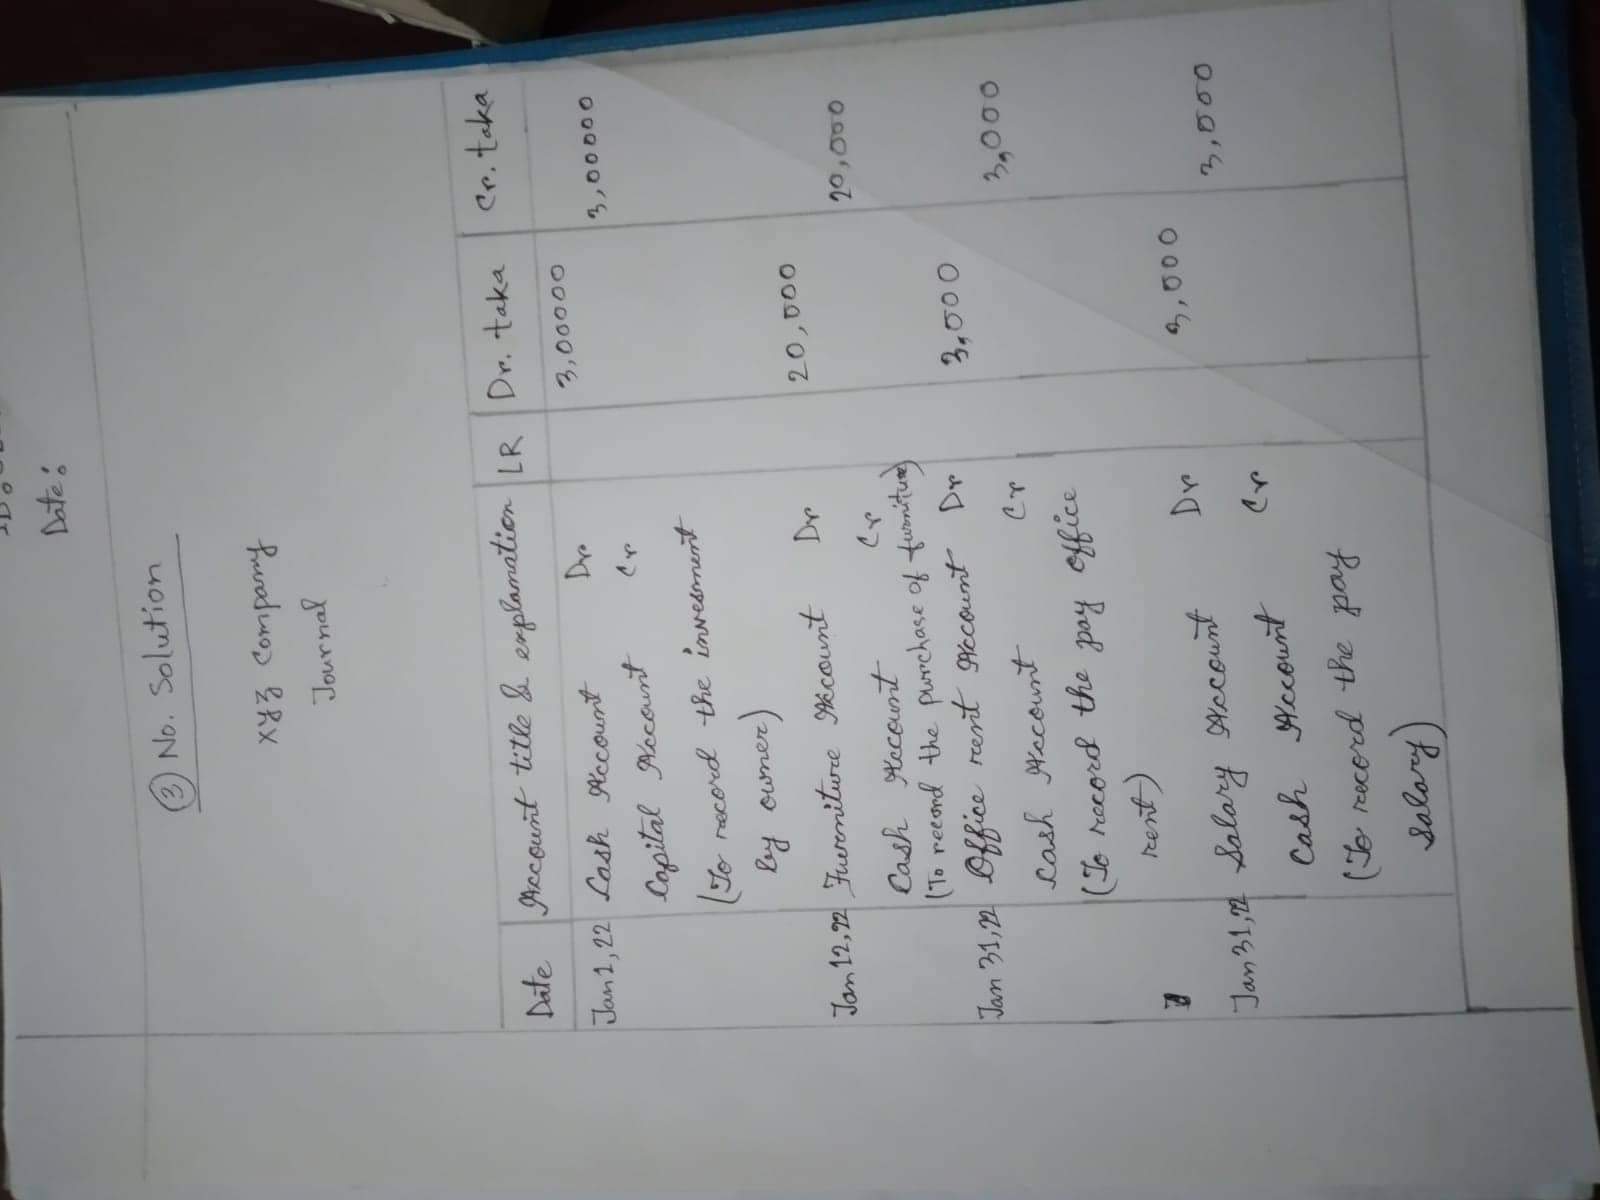 Date:
③ No. Solution
xyz Company
Journal
Date Account title & explanation LR Dr. taka Cr. taka
Jan 1, 22 Cash Account Dr 3,00000
Capital Account Cr 3,00000
(To record the invesment
by owner)
Jan 12, 22 Furniture Account Dr 20,000
Cash Account Cr 20,000
(To record the purchase of furniture)
Jan 31, 22 Office rent Account Dr 3,000
Cash Account Cr 3,000
(To record the pay office
rent)
Jan 31, 22 Salary Account Dr 3,000
Cash Account Cr 3,000
(To record the pay
salary)